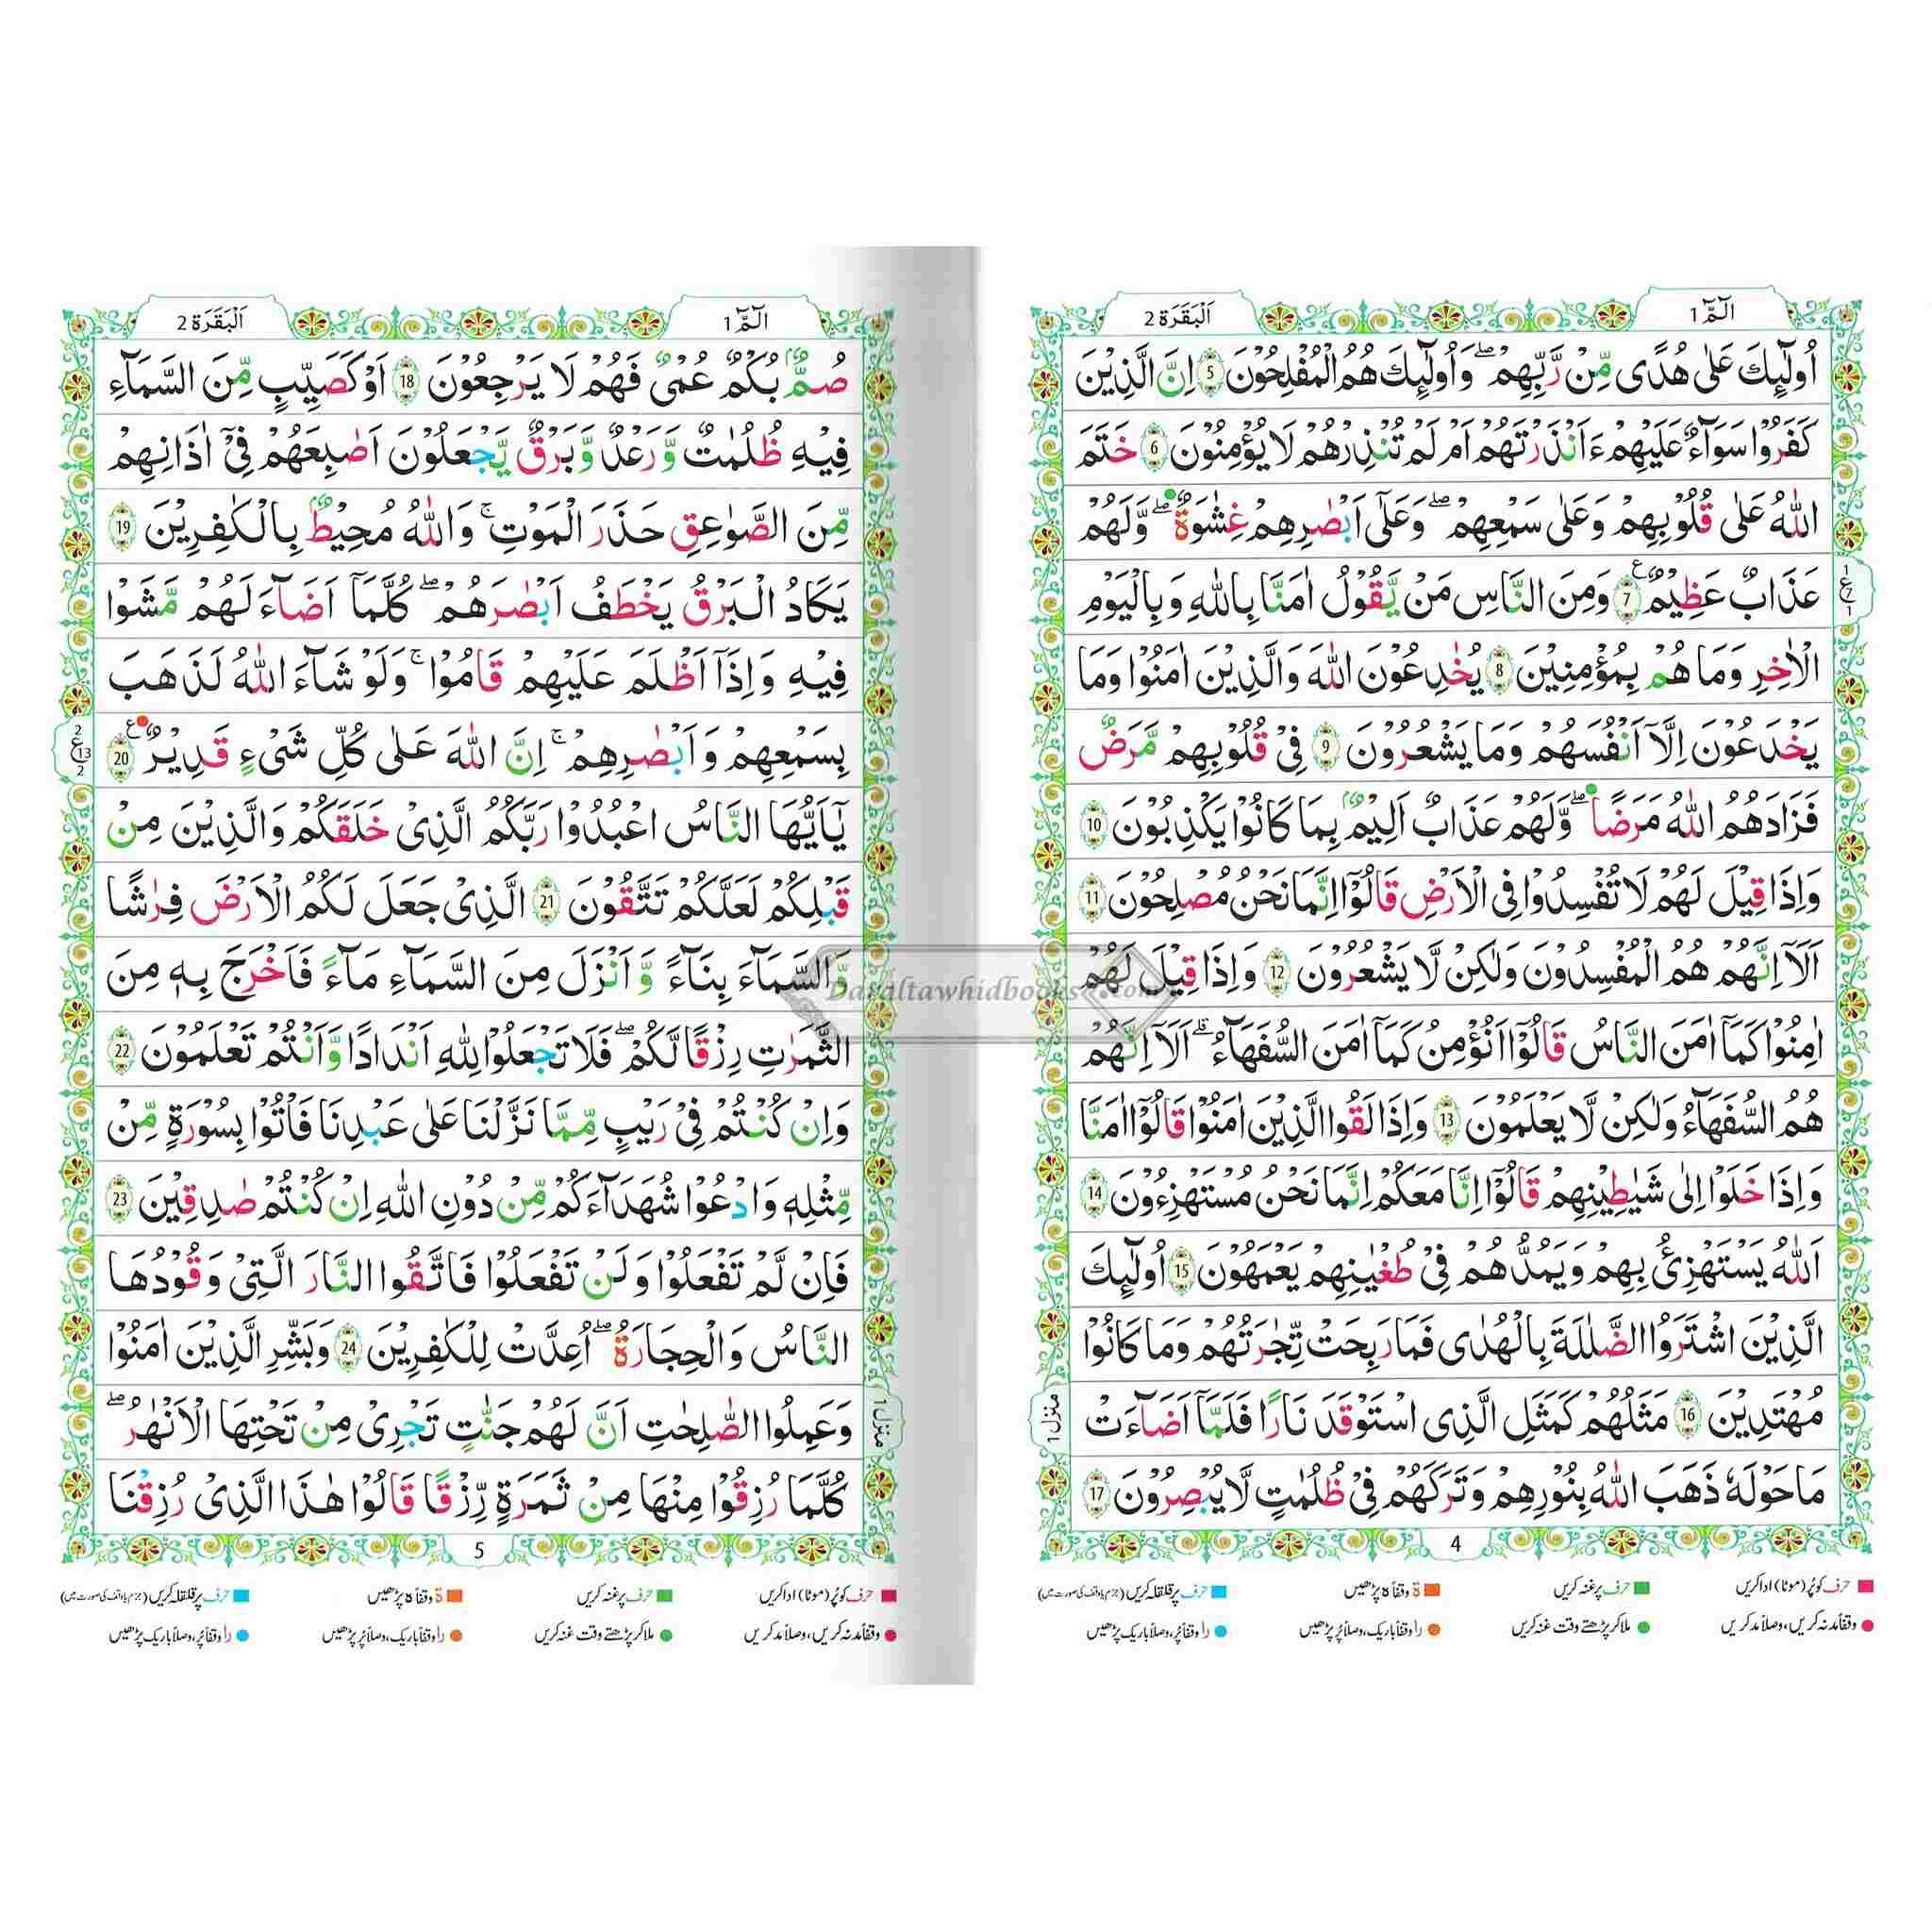 الٓمّٓ 1
اَلْبَقَرَة 2
اُولٰٓئِكَ عَلٰى هُدًى مِّنْ رَّبِّهِمْ ۖ وَاُولٰٓئِكَ هُمُ الْمُفْلِحُوْنَ 5 اِنَّ الَّذِيْنَ
كَفَرُوْا سَوَآءٌ عَلَيْهِمْ ءَاَنْذَرْتَهُمْ اَمْ لَمْ تُنْذِرْهُمْ لَا يُؤْمِنُوْنَ 6 خَتَمَ
اللّٰهُ عَلٰى قُلُوْبِهِمْ وَعَلٰى سَمْعِهِمْ ۖ وَعَلٰٓى اَبْصٰرِهِمْ غِشٰوَةٌ ۖ وَّلَهُمْ
عَذَابٌ عَظِيْمٌ 7 وَمِنَ النَّاسِ مَنْ يَّقُوْلُ اٰمَنَّا بِاللّٰهِ وَبِالْيَوْمِ
الْاٰخِرِ وَمَا هُمْ بِمُؤْمِنِيْنَ 8 يُخٰدِعُوْنَ اللّٰهَ وَالَّذِيْنَ اٰمَنُوْا وَمَا
يَخْدَعُوْنَ اِلَّآ اَنْفُسَهُمْ وَمَا يَشْعُرُوْنَ 9 فِيْ قُلُوْبِهِمْ مَّرَضٌ
فَزَادَهُمُ اللّٰهُ مَرَضًا ۖ وَّلَهُمْ عَذَابٌ اَلِيْمٌ بِمَا كَانُوْا يَكْذِبُوْنَ 10
وَاِذَا قِيْلَ لَهُمْ لَا تُفْسِدُوْا فِى الْاَرْضِ قَالُوْٓا اِنَّمَا نَحْنُ مُصْلِحُوْنَ 11
اَلَآ اِنَّهُمْ هُمُ الْمُفْسِدُوْنَ وَلٰكِنْ لَّا يَشْعُرُوْنَ 12 وَاِذَا قِيْلَ لَهُمْ
اٰمِنُوْا كَمَآ اٰمَنَ النَّاسُ قَالُوْٓا اَنُؤْمِنُ كَمَآ اٰمَنَ السُّفَهَآءُ ۗ اَلَآ اِنَّهُمْ
هُمُ السُّفَهَآءُ وَلٰكِنْ لَّا يَعْلَمُوْنَ 13 وَاِذَا لَقُوا الَّذِيْنَ اٰمَنُوْا قَالُوْٓا اٰمَنَّا
وَاِذَا خَلَوْا اِلٰى شَيٰطِيْنِهِمْ قَالُوْٓا اِنَّا مَعَكُمْ اِنَّمَا نَحْنُ مُسْتَهْزِءُوْنَ 14
اَللّٰهُ يَسْتَهْزِئُ بِهِمْ وَيَمُدُّهُمْ فِيْ طُغْيٰنِهِمْ يَعْمَهُوْنَ 15 اُولٰٓئِكَ
الَّذِيْنَ اشْتَرَوُا الضَّلٰلَةَ بِالْهُدٰى فَمَا رَبِحَتْ تِّجٰرَتُهُمْ وَمَا كَانُوْا
مُهْتَدِيْنَ 16 مَثَلُهُمْ كَمَثَلِ الَّذِى اسْتَوْقَدَ نَارًا فَلَمَّآ اَضَآءَتْ
مَا حَوْلَهٗ ذَهَبَ اللّٰهُ بِنُوْرِهِمْ وَتَرَكَهُمْ فِيْ ظُلُمٰتٍ لَّا يُبْصِرُوْنَ 17
منزل 1
4
حرف کو پُر (موٹا) ادا کریں
حرف پر غنہ کریں
ة وقفاً ہ پڑھیں
حرف پر قلقلہ کریں (جزم یا وقف کی صورت میں)
وقفاً مد نہ کریں، وصلاً مد کریں
ملا کر پڑھتے وقت غنہ کریں
را وقفاً باریک، وصلاً پُر پڑھیں
را وقفاً پُر، وصلاً باریک پڑھیں
الٓمّٓ 1
اَلْبَقَرَة 2
صُمٌّۢ بُكْمٌ عُمْيٌ فَهُمْ لَا يَرْجِعُوْنَ 18 اَوْ كَصَيِّبٍ مِّنَ السَّمَآءِ
فِيْهِ ظُلُمٰتٌ وَّرَعْدٌ وَّبَرْقٌ يَّجْعَلُوْنَ اَصٰبِعَهُمْ فِيْٓ اٰذَانِهِمْ
مِّنَ الصَّوٰعِقِ حَذَرَ الْمَوْتِ ۚ وَاللّٰهُ مُحِيْطٌ بِالْكٰفِرِيْنَ 19
يَكَادُ الْبَرْقُ يَخْطَفُ اَبْصٰرَهُمْ ۖ كُلَّمَآ اَضَآءَ لَهُمْ مَّشَوْا
فِيْهِ وَاِذَآ اَظْلَمَ عَلَيْهِمْ قَامُوْا ۚ وَلَوْ شَآءَ اللّٰهُ لَذَهَبَ
بِسَمْعِهِمْ وَاَبْصٰرِهِمْ ۚ اِنَّ اللّٰهَ عَلٰى كُلِّ شَيْءٍ قَدِيْرٌ 20
يٰٓاَيُّهَا النَّاسُ اعْبُدُوْا رَبَّكُمُ الَّذِيْ خَلَقَكُمْ وَالَّذِيْنَ مِنْ
قَبْلِكُمْ لَعَلَّكُمْ تَتَّقُوْنَ 21 الَّذِيْ جَعَلَ لَكُمُ الْاَرْضَ فِرٰشًا
وَّالسَّمَآءَ بِنَآءً وَّاَنْزَلَ مِنَ السَّمَآءِ مَآءً فَاَخْرَجَ بِهٖ مِنَ
الثَّمَرٰتِ رِزْقًا لَّكُمْ ۖ فَلَا تَجْعَلُوْا لِلّٰهِ اَنْدَادًا وَّاَنْتُمْ تَعْلَمُوْنَ 22
وَاِنْ كُنْتُمْ فِيْ رَيْبٍ مِّمَّا نَزَّلْنَا عَلٰى عَبْدِنَا فَاْتُوْا بِسُوْرَةٍ مِّنْ
مِّثْلِهٖ وَادْعُوْا شُهَدَآءَكُمْ مِّنْ دُوْنِ اللّٰهِ اِنْ كُنْتُمْ صٰدِقِيْنَ 23
فَاِنْ لَّمْ تَفْعَلُوْا وَلَنْ تَفْعَلُوْا فَاتَّقُوا النَّارَ الَّتِيْ وَقُوْدُهَا
النَّاسُ وَالْحِجَارَةُ ۖ اُعِدَّتْ لِلْكٰفِرِيْنَ 24 وَبَشِّرِ الَّذِيْنَ اٰمَنُوْا
وَعَمِلُوا الصّٰلِحٰتِ اَنَّ لَهُمْ جَنّٰتٍ تَجْرِيْ مِنْ تَحْتِهَا الْاَنْهٰرُ ۖ
كُلَّمَا رُزِقُوْا مِنْهَا مِنْ ثَمَرَةٍ رِّزْقًا قَالُوْا هٰذَا الَّذِيْ رُزِقْنَا
منزل 1
5
حرف کو پُر (موٹا) ادا کریں
حرف پر غنہ کریں
ة وقفاً ہ پڑھیں
حرف پر قلقلہ کریں (جزم یا وقف کی صورت میں)
وقفاً مد نہ کریں، وصلاً مد کریں
ملا کر پڑھتے وقت غنہ کریں
را وقفاً باریک، وصلاً پُر پڑھیں
را وقفاً پُر، وصلاً باریک پڑھیں
Daraltawhidbooks.com